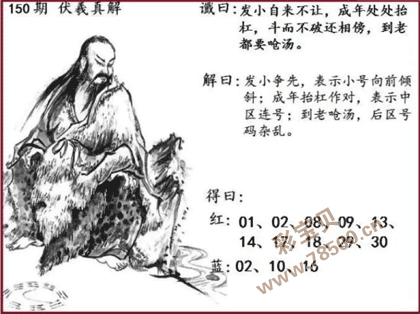 150期 伏羲真解
谶曰：发小自来不让，成年处处抬
杠，斗而不破还相傍，到老
都要呛汤。
解曰：发小争先，表示小号向前倾
斜；成年抬杠作对，表示中
区连号；到老呛汤，后区号
码杂乱。
得曰：
红：01、02、08、09、13、
14、17、18、29、30
蓝：02、10、16
彩宝贝
www.78500.cn